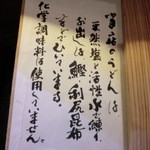 当店のうどんは
天然塩と活性水で練り
お出しは鰹・利尻昆布
などでむいています。
化学調味料は使用していません。